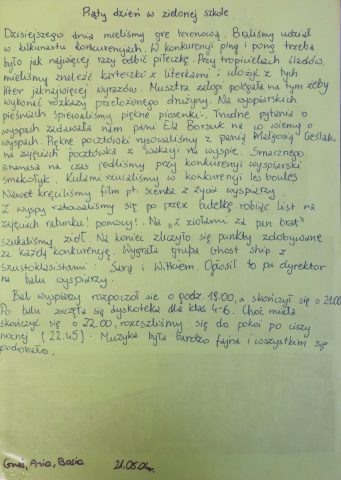 Piąty dzień w zielonej szkole
Dzisiejszego dnia mieliśmy grę terenową. Braliśmy udział
w kilkunastu konkurencjach. W konkurencji ping i pong trzeba
było jak najwięcej razy odbić piłeczkę. Przy tropicielach śladów
mieliśmy znaleźć karteczki z literkami i ułożyć z tych
liter jaknajwięcej wyrazów. Musztra załogi polegała na tym żeby
wykonać rozkazy przełożonego drużyny. Na wyspiarskich
pieśniach śpiewaliśmy piękne piosenki. Trudne pytania o
wyspach zadawała nam pani Ela Borsuk na w wiemy o
wyspach. Piękne pocztówki rysowaliśmy z panią Małgosią Cieślak
na zajęciach pocztówka z wakacji na wyspie. Smacznego
ananasa na czas jedliśmy przy konkurencji wyspiarski
smakołyk. Kulami rzucaliśmy w konkurencji les boules
Nawet kręciliśmy film pt. scenka z życia wyspiarzy.
Z wyspy ratowaliśmy się po przez butelkę robiąc list na
zajęciach ratunku! pomocy!. Na „z ziołami za pan brat"
szukaliśmy ziół. Na koniec zliczyło się punkty zdobywane
za każdą konkurencję. Wygrała grupa Ghost ship z
szustoklasistami: Sarą i Witkiem. Ogłosił to pa dyrektor
na balu wyspiarzy.
Bal wyspiarzy rozpoczoł sie o godz. 18.00, a skończył się o 21.00
Po balu zaczęła się dyskoteka dla klas 4-6. Choć miała
skończyć się o 22.00, rozeszliśmy się do pokoi po ciszy
nocnej (22.45). Muzyka była bardzo fajna i wszystkim się
podobało.
Ania, Basia